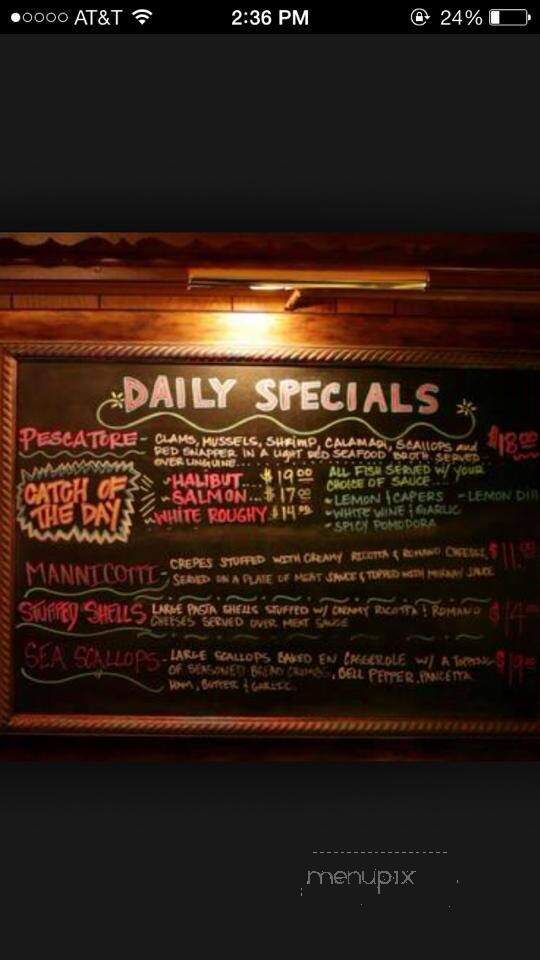 AT&T 2:36 PM 24%
DAILY SPECIALS
PESCATORE - CLAMS, MUSSELS, SHRIMP, CALAMARI, SCALLOPS and $18.00
RED SNAPPER IN A LIGHT RED SEAFOOD BROTH SERVED
OVER LINGUINE...
CATCH OF
THE DAY
-HALIBUT.. $19.00
-SALMON... $17.00
WHITE ROUGHY. $14.00
ALL FISH SERVED W/ YOUR
CHOICE OF SAUCE
-LEMON & CAPERS -LEMON DILL
-WHITE WINE & GARLIC
-SPICY POMODORA
MANNICOTTI - CREPES STUFFED WITH CREAMY RICOTTA & ROMANO CHEESES, $11.00
SERVED ON A PLATE OF MEAT SAUCE & TOPPED WITH MORNAY SAUCE
STUFFED SHELLS LARGE PASTA SHELLS STUFFED W/ CREAMY RICOTTA & ROMANO $14
CHEESES SERVED OVER MEAT SAUCE
SEA SCALLOPS - LARGE SCALLOPS BAKED EN CASSEROLE W/ A TOPPING $19
OF SEASONED BREAD CRUMBS, BELL PEPPER, PANCETTA
HAM, BUTTER & GARLIC.
menupix